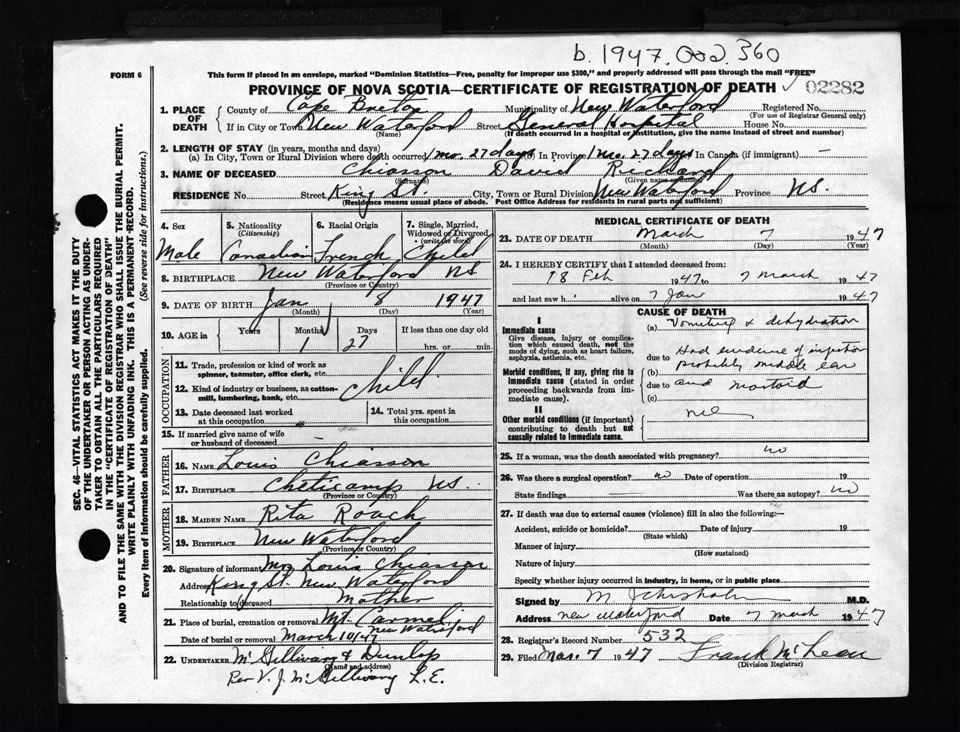 b. 1947. 360
FORM 6
This form if placed in an envelope, marked "Dominion Statistics—Free, penalty for improper use $300," and properly addressed will pass through the mail "FREE"
PROVINCE OF NOVA SCOTIA—CERTIFICATE OF REGISTRATION OF DEATH 02282
SEC. 46—VITAL STATISTICS ACT MAKES IT THE DUTY
OF THE UNDERTAKER OR PERSON ACTING AS UNDER-
TAKER TO OBTAIN ALL THE PARTICULARS REQUIRED
IN THE "CERTIFICATE OF REGISTRATION OF DEATH"
AND TO FILE THE SAME WITH THE DIVISION REGISTRAR WHO SHALL ISSUE THE BURIAL PERMIT.
WRITE PLAINLY WITH UNFADING INK. THIS IS A PERMANENT RECORD.
Every item of information should be carefully supplied. (See reverse side for instructions.)
1. PLACE OF DEATH
County of Cape Breton Municipality of New Waterford Registered No.
(For use of Registrar General only)
If in City or Town New Waterford Street General Hospital House No.
(Name) (If death occurred in a hospital or institution, give the name instead of street and number)
2. LENGTH OF STAY (in years, months and days)
(a) In City, Town or Rural Division where death occurred 1 mo. 27 days (b) In Province 1 mo. 27 days In Canada (if immigrant) —
3. NAME OF DECEASED Chiasson David Richard
(Surname) (Given names)
RESIDENCE No. Street King St. City, Town or Rural Division New Waterford Province N.S.
(Residence means usual place of abode. Post Office Address for residents in rural parts not sufficient)
4. Sex 5. Nationality 6. Racial Origin 7. Single, Married,
(Citizenship) Widowed or Divorced
(write the word)
Male Canadian French Child
8. BIRTHPLACE New Waterford NS
(Province or Country)
9. DATE OF BIRTH Jan 8 1947
(Month) (Day) (Year)
10. AGE in Years Months Days If less than one day old
1 27 hrs. or min.
OCCUPATION
11. Trade, profession or kind of work as
spinner, teamster, office clerk, etc.
12. Kind of industry or business, as cotton-
mill, lumbering, bank, etc. Child
13. Date deceased last worked
at this occupation
14. Total yrs. spent in
this occupation
15. If married give name of wife
or husband of deceased —
FATHER
16. NAME Louis Chiasson
17. BIRTHPLACE Cheticamp N.S.
(Province or Country)
MOTHER
18. MAIDEN NAME Rita Roach
19. BIRTHPLACE New Waterford
(Province or Country)
20. Signature of informant Mrs Louis Chiasson
Address King St. New Waterford
Relationship to deceased Mother
21. Place of burial, cremation or removal Mt. Carmel
New Waterford
Date of burial or removal March 10/47
22. UNDERTAKER McGillivary & Dunlop
(Name and address)
Rev V. J. McGillivary L.E.
MEDICAL CERTIFICATE OF DEATH
23. DATE OF DEATH March 7 1947
(Month) (Day) (Year)
24. I HEREBY CERTIFY that I attended deceased from:
18 Feb 1947 to 7 March 1947
and last saw h alive on 7 1947
CAUSE OF DEATH
I
Immediate cause
Give disease, injury or complica-
tion which caused death, not the
mode of dying, such as heart failure,
asphyxia, asthenia, etc.
(a) Vomiting & dehydration
due to Had evidence of infection
Morbid conditions, if any, giving rise to
immediate cause (stated in order
proceeding backwards from im-
mediate cause).
(b) probably middle ear
due to and mastoid
(c)
II
Other morbid conditions (if important)
contributing to death but not
causally related to immediate cause.
nil
25. If a woman, was the death associated with pregnancy? no
26. Was there a surgical operation? no Date of operation 19
State findings Was there an autopsy? no
27. If death was due to external causes (violence) fill in also the following:—
Accident, suicide or homicide? Date of injury 19
(State which)
Manner of injury
(How sustained)
Nature of injury
Specify whether injury occurred in industry, in home, or in public place
Signed by M. J. Chisholm M.D.
Address New Waterford Date 7 March 1947
28. Registrar's Record Number 532
29. Filed Mar. 7 1947 Frank McLean
(Division Registrar)